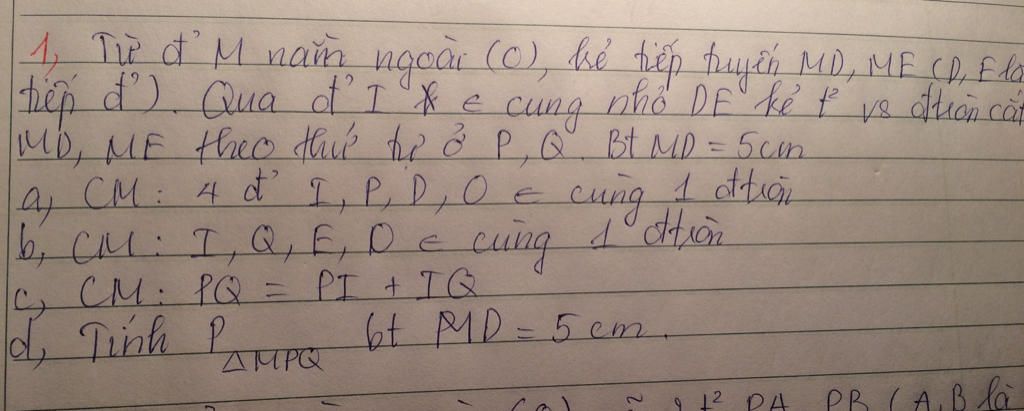 1, Từ đ' M nằm ngoài (O), kẻ tiếp tuyến MD, ME (D, E là
tiếp đ'). Qua đ' I ∈ cung nhỏ DE kẻ t² vs đtròn cắt
MD, ME theo thứ tự ở P, Q. Bt MD = 5cm
a, CM: 4 đ' I, P, D, O ∈ cùng 1 đtròn
b, CM: I, Q, E, O ∈ cùng 1 đtròn
c, CM: PQ = PI + IQ
d, Tính P△MPQ bt MD = 5 cm.
(O) t² PA, PB (A, B là